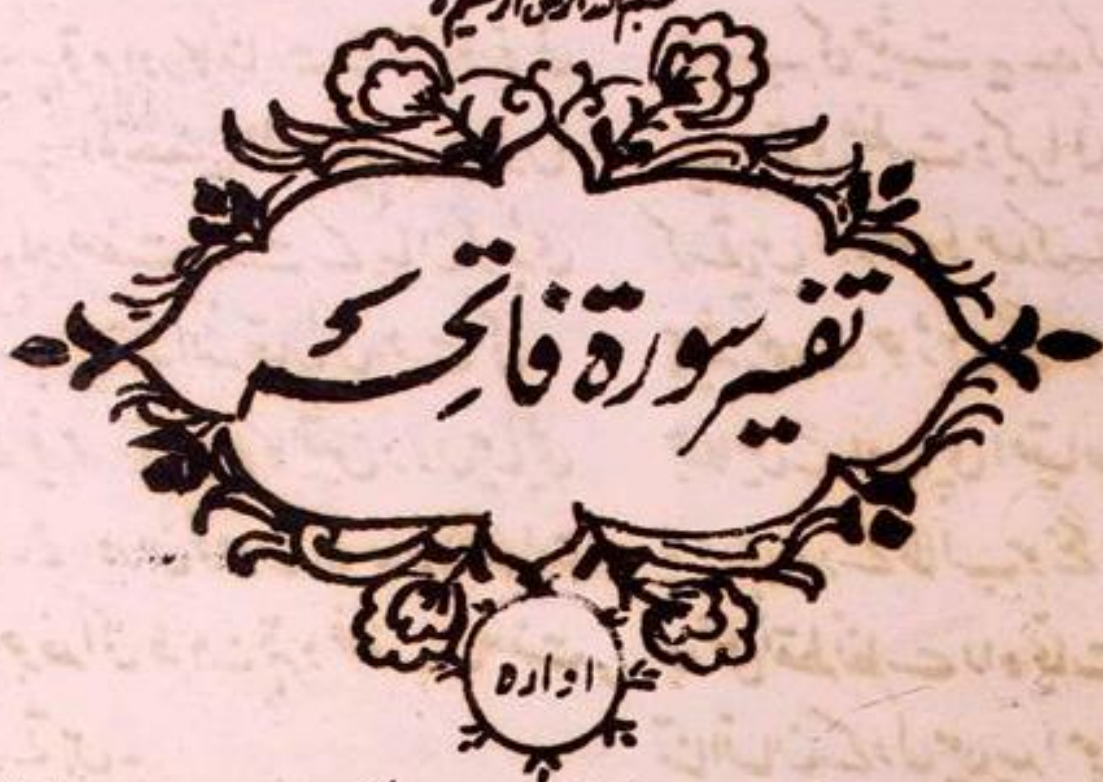 بسم اللہ الرحمن الرحیم
تفسیر سورۃ فاتحہ
ادارہ